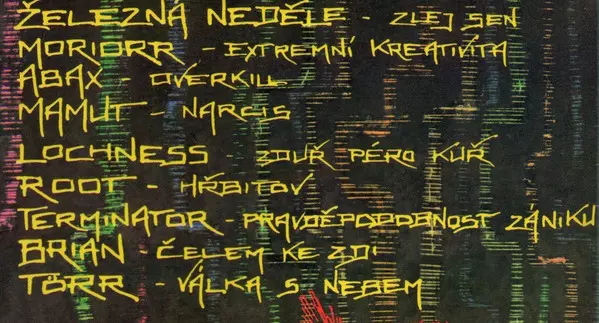 ŽELEZNÁ NEDĚLE - ZLEJ SEN
MORIORR - EXTREMNÍ KREATIVITA
ABAX - OVERKILL
MAMUT - NARCIS
LOCHNESS - ZOUŘ PÉRO KUŘ
ROOT - HŘBITOV
TERMINATOR - PRAVDĚPODOBNOST ZÁNIKU
BRIAN - ČELEM KE ZDI
TÖRR - VÁLKA S NEBEM